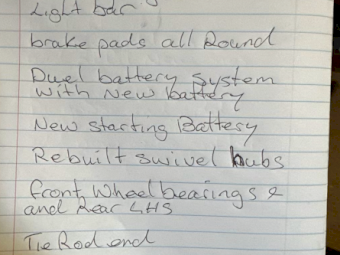 Light bar
brake pads all Round
Duel battery System
with New battery
New starting Battery
Rebuilt swivel hubs
front wheel bearings &
and Rear LHS
Tie Rod end